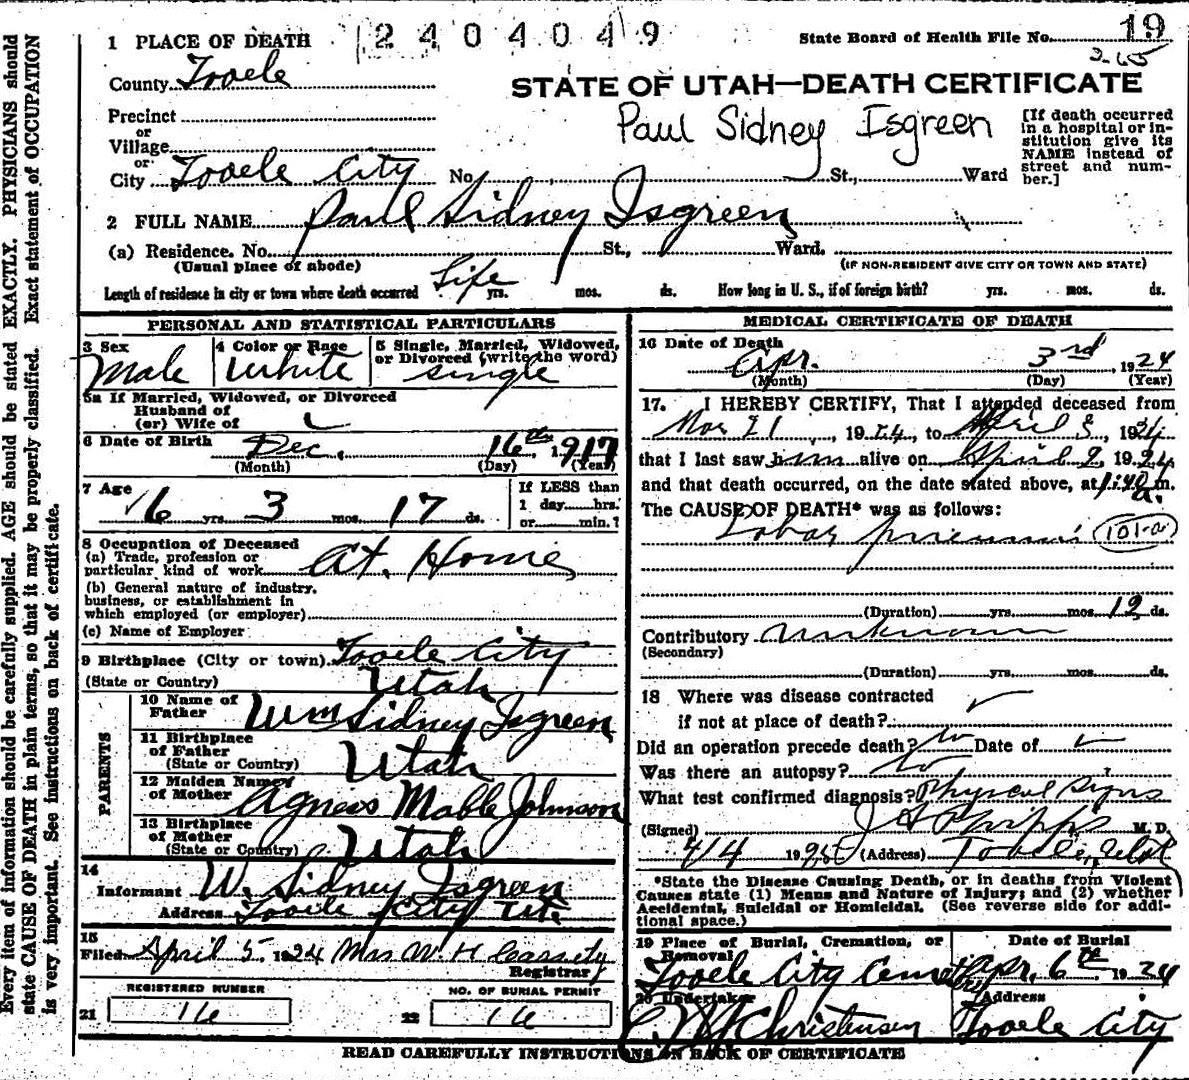 1 PLACE OF DEATH 2404049 State Board of Health File No. 19
265
County Tooele
STATE OF UTAH—DEATH CERTIFICATE
Precinct
or
Village
or
City Tooele City No. St., Ward
Paul Sidney Isgreen
[If death occurred
in a hospital or in-
stitution give its
NAME instead of
street and num-
ber.]
2 FULL NAME Paul Sidney Isgreen
(a) Residence. No. St., Ward.
(Usual place of abode) (IF NON-RESIDENT GIVE CITY OR TOWN AND STATE)
Length of residence in city or town where death occurred Life yrs. mos. ds. How long in U. S., if of foreign birth? yrs. mos. ds.
PERSONAL AND STATISTICAL PARTICULARS
3 Sex
Male
4 Color or Race
White
5 Single, Married, Widowed,
or Divorced (write the word)
single
5a If Married, Widowed, or Divorced
Husband of
(or) Wife of
6 Date of Birth Dec. 16th 1917
(Month) (Day) (Year)
7 Age 6 yrs. 3 mos. 17 ds.
If LESS than
1 day hrs.
or min.?
8 Occupation of Deceased
(a) Trade, profession or
particular kind of work At Home
(b) General nature of industry,
business, or establishment in
which employed (or employer)
(c) Name of Employer
9 Birthplace (City or town) Tooele City
(State or Country) Utah
PARENTS
10 Name of
Father Wm Sidney Isgreen
11 Birthplace
of Father
(State or Country) Utah
12 Maiden Name
of Mother Agness Mable Johnson
13 Birthplace
of Mother
(State or Country) Utah
14
Informant W. Sidney Isgreen
Address Tooele City
15
Filed April 5, 1924 Mrs W. H Cassity
Registrar
REGISTERED NUMBER
21 16
NO. OF BURIAL PERMIT
22 16
MEDICAL CERTIFICATE OF DEATH
16 Date of Death
Apr. 3rd, 1924
(Month) (Day) (Year)
17. I HEREBY CERTIFY, That I attended deceased from
21, 1924, to April 3, 1924
that I last saw him alive on April 2, 1924
and that death occurred, on the date stated above, at a. m.
The CAUSE OF DEATH* was as follows:
Lobar pneumonia 101-a
(Duration) yrs. mos. 12 ds.
Contributory unknown
(Secondary)
(Duration) yrs. mos. ds.
18 Where was disease contracted
if not at place of death?
Did an operation precede death? no Date of
Was there an autopsy? no
What test confirmed diagnosis? Physical Signs
(Signed) J H Phipps M. D.
4/4 192 (Address) Tooele, Utah
*State the Disease Causing Death, or in deaths from Violent
Causes state (1) Means and Nature of Injury; and (2) whether
Accidental, Suicidal or Homicidal. (See reverse side for addi-
tional space.)
19 Place of Burial, Cremation, or
Removal
Tooele City Cemetery
Date of Burial
Apr. 6th, 1924
20 Undertaker
Christensen
Address
Tooele City
READ CAREFULLY INSTRUCTIONS ON BACK OF CERTIFICATE
Every item of information should be carefully supplied. AGE should be stated EXACTLY. PHYSICIANS should
state CAUSE OF DEATH in plain terms, so that it may be properly classified. Exact statement of OCCUPATION
is very important. See instructions on back of certificate.